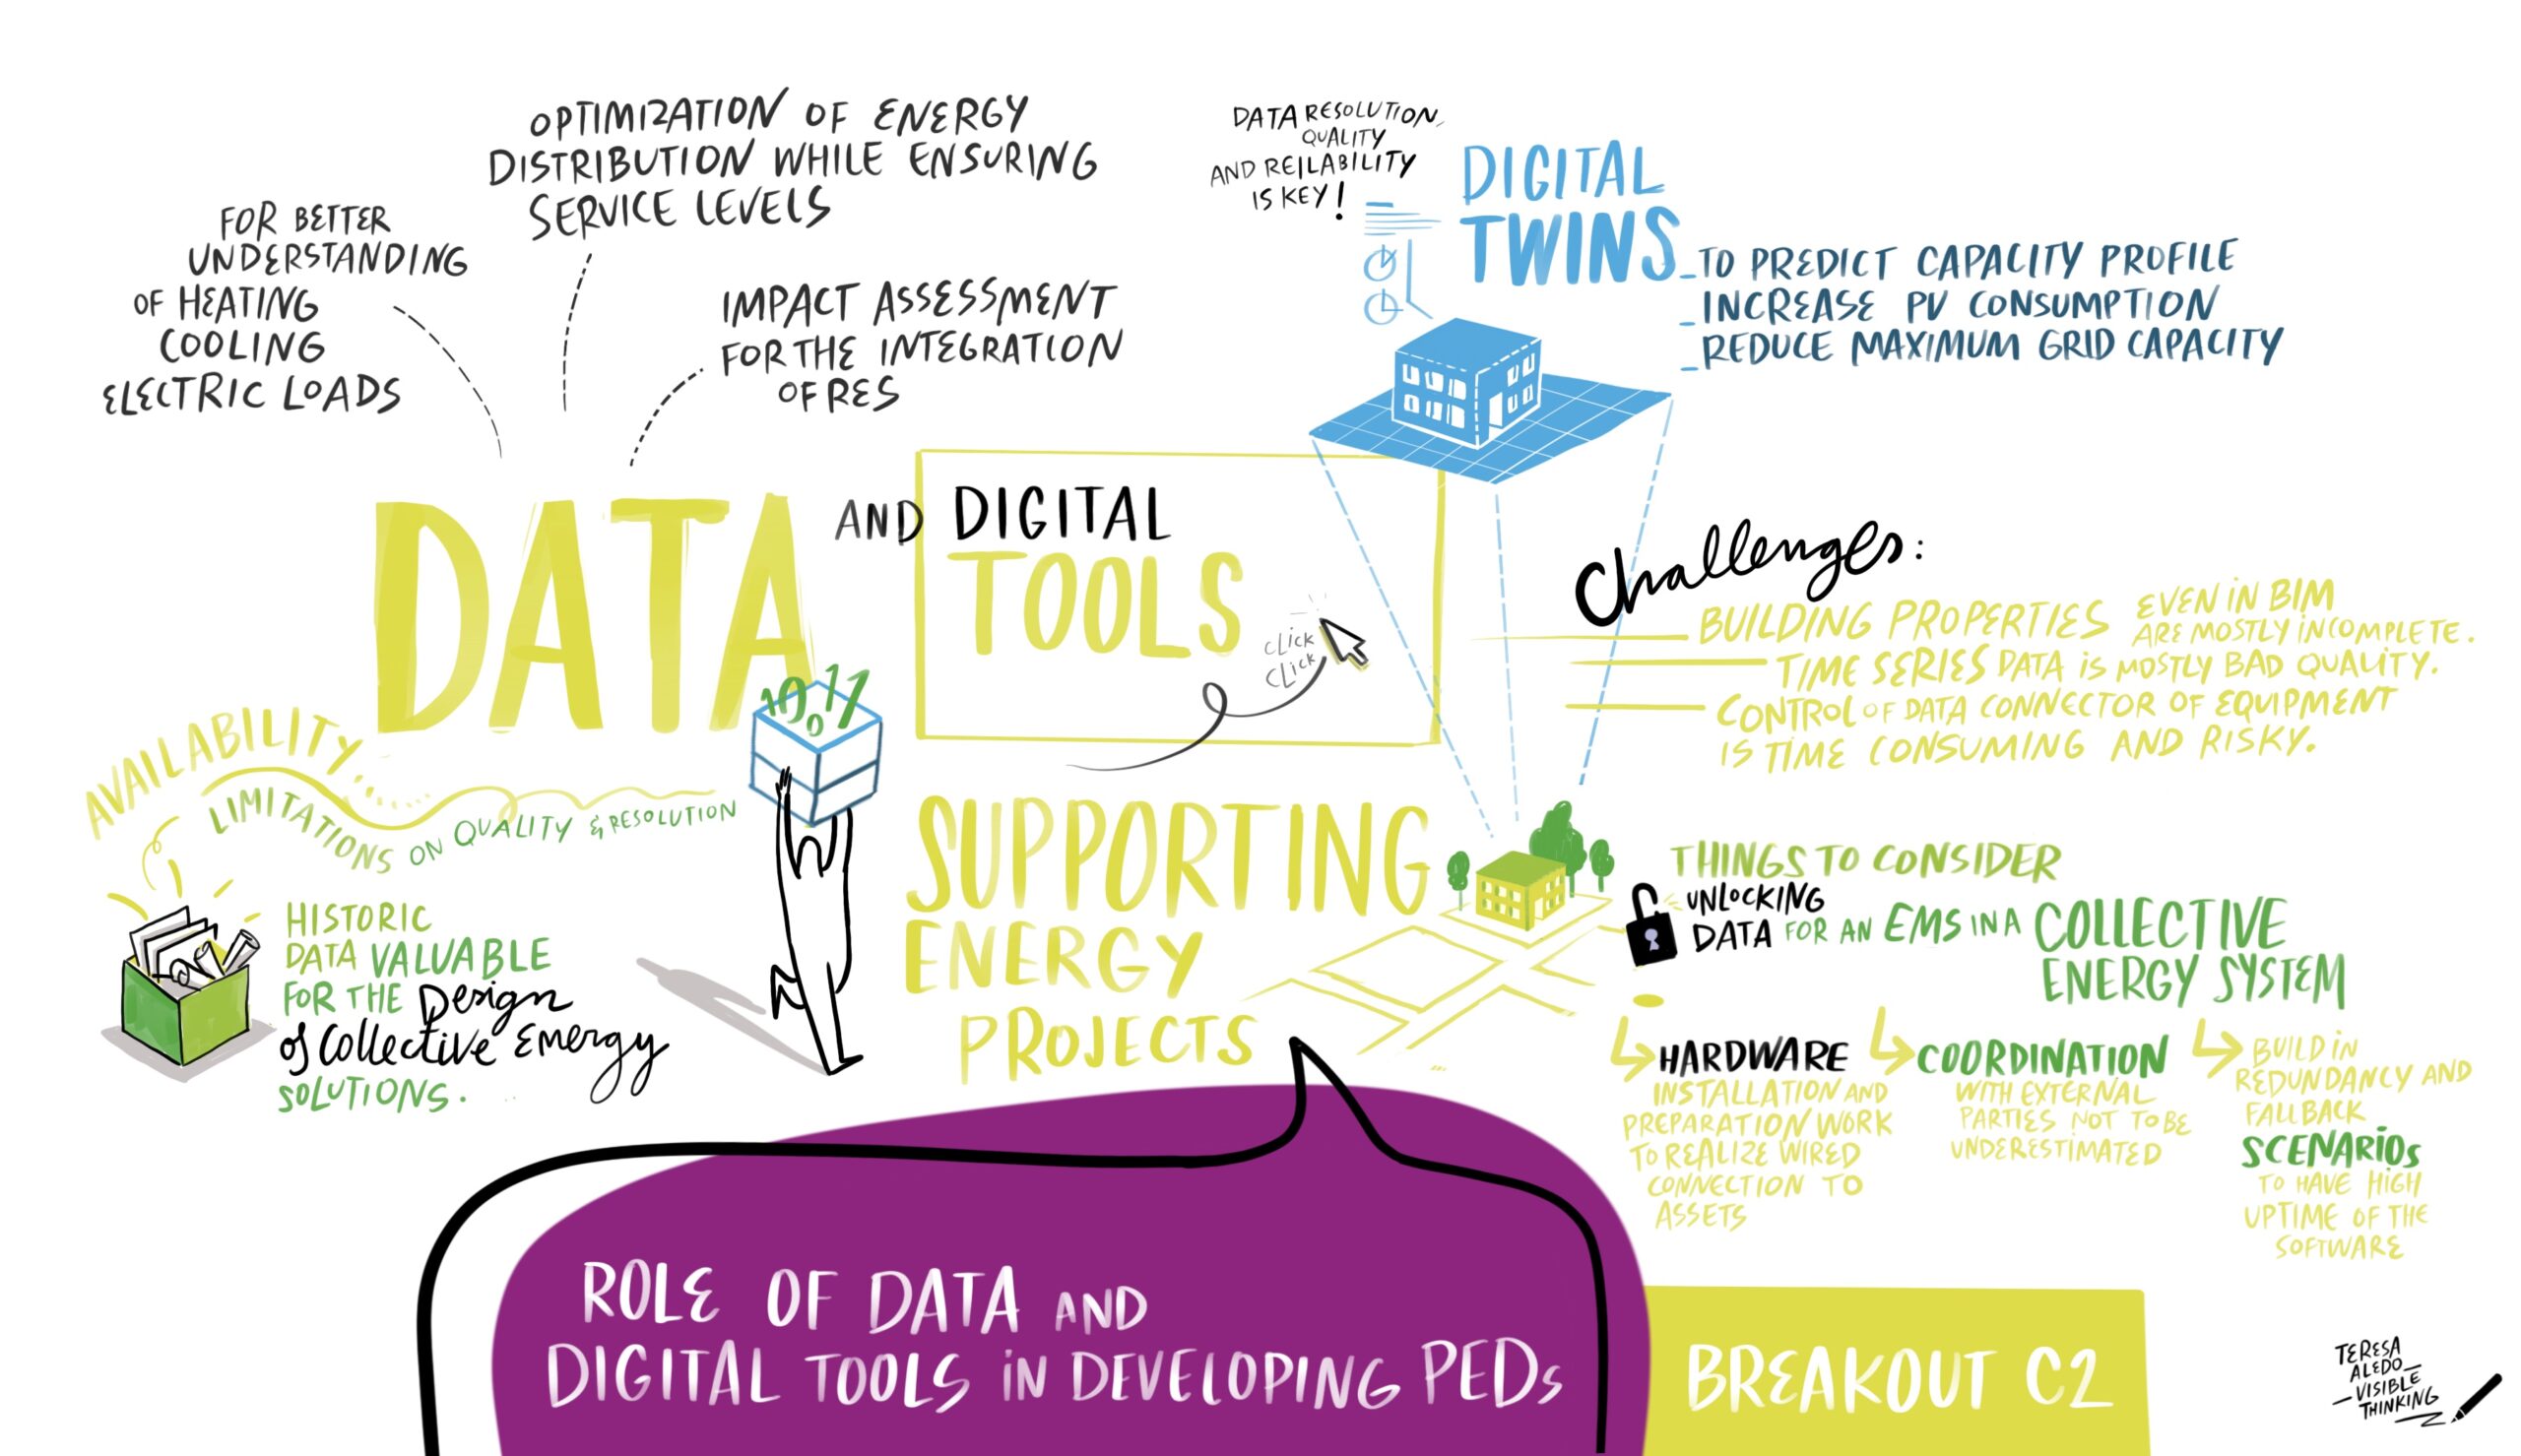 FOR BETTER
UNDERSTANDING
OF HEATING
COOLING
ELECTRIC LOADS
OPTIMIZATION OF ENERGY
DISTRIBUTION WHILE ENSURING
SERVICE LEVELS
IMPACT ASSESSMENT
FOR THE INTEGRATION
OF RES
DATA RESOLUTION,
QUALITY
AND REILABILITY
IS KEY!
DIGITAL
TWINS
_TO PREDICT CAPACITY PROFILE
_INCREASE PV CONSUMPTION
_REDUCE MAXIMUM GRID CAPACITY
DATA AND DIGITAL
TOOLS
CLICK
CLICK
SUPPORTING
ENERGY
PROJECTS
AVAILABILITY.....
LIMITATIONS ON QUALITY & RESOLUTION
HISTORIC
DATA VALUABLE
FOR THE Design
of Collective Energy
SOLUTIONS.
Challenges:
BUILDING PROPERTIES EVEN IN BIM
ARE MOSTLY INCOMPLETE.
TIME SERIES DATA IS MOSTLY BAD QUALITY.
CONTROL OF DATA CONNECTOR OF EQUIPMENT
IS TIME CONSUMING AND RISKY.
THINGS TO CONSIDER
UNLOCKING
DATA FOR AN EMS IN A COLLECTIVE
ENERGY SYSTEM
HARDWARE
INSTALLATION AND
PREPARATION WORK
TO REALIZE WIRED
CONNECTION TO
ASSETS
COORDINATION
WITH EXTERNAL
PARTIES NOT TO BE
UNDERESTIMATED
BUILD IN
REDUNDANCY AND
FALLBACK
SCENARIOS
TO HAVE HIGH
UPTIME OF THE
SOFTWARE
ROLE OF DATA AND
DIGITAL TOOLS IN DEVELOPING PEDs
BREAKOUT C2
TERESA
ALEDO_
_VISIBLE
THINKING